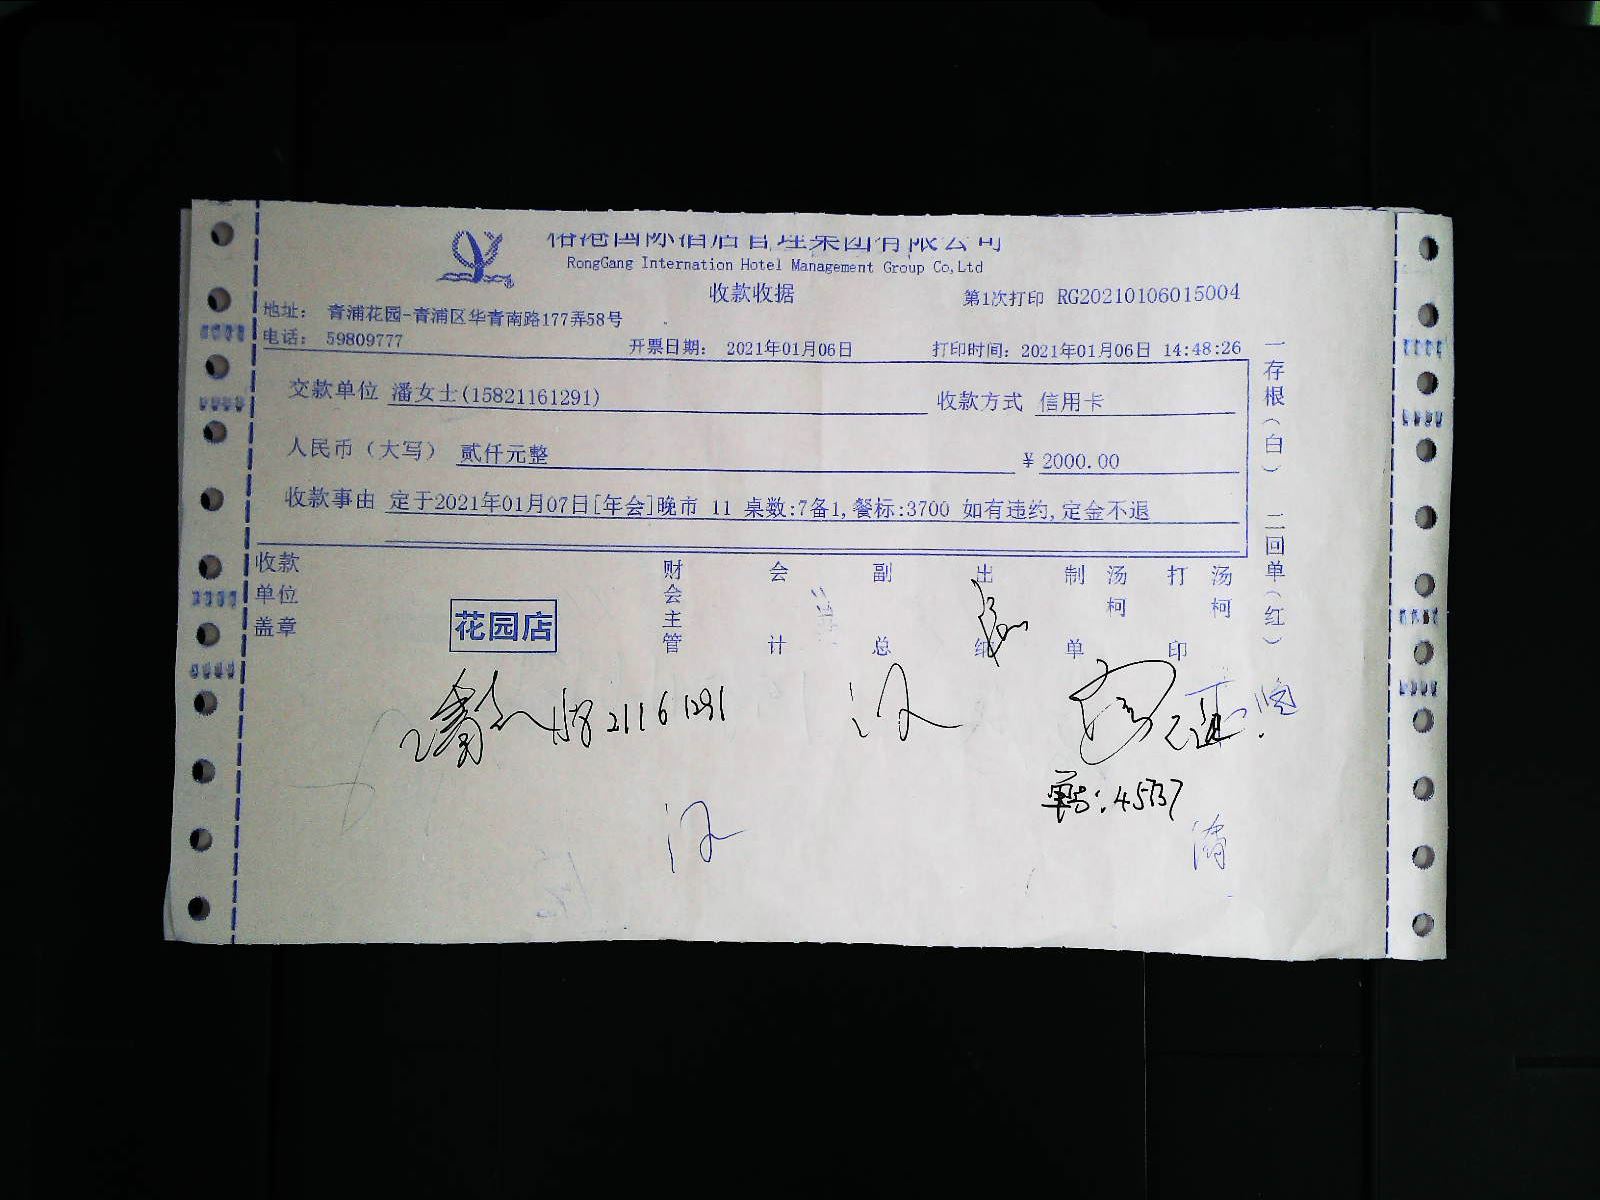 榕港国际酒店管理集团有限公司
RongGang Internation Hotel Management Group Co,Ltd
收款收据
第1次打印 RG20210106015004
地址： 青浦花园-青浦区华青南路177弄58号
电话： 59809777
开票日期： 2021年01月06日
打印时间：2021年01月06日 14:48:26
交款单位 潘女士(15821161291)
收款方式 信用卡
人民币（大写） 贰仟元整
¥ 2000.00
收款事由 定于2021年01月07日[年会]晚市 11 桌数:7备1,餐标:3700 如有违约,定金不退
一存根（白） 二回单（红）
收款单位盖章
花园店
财会主管
会计
副总
出纳
制单 汤柯
打印 汤柯
15821161291